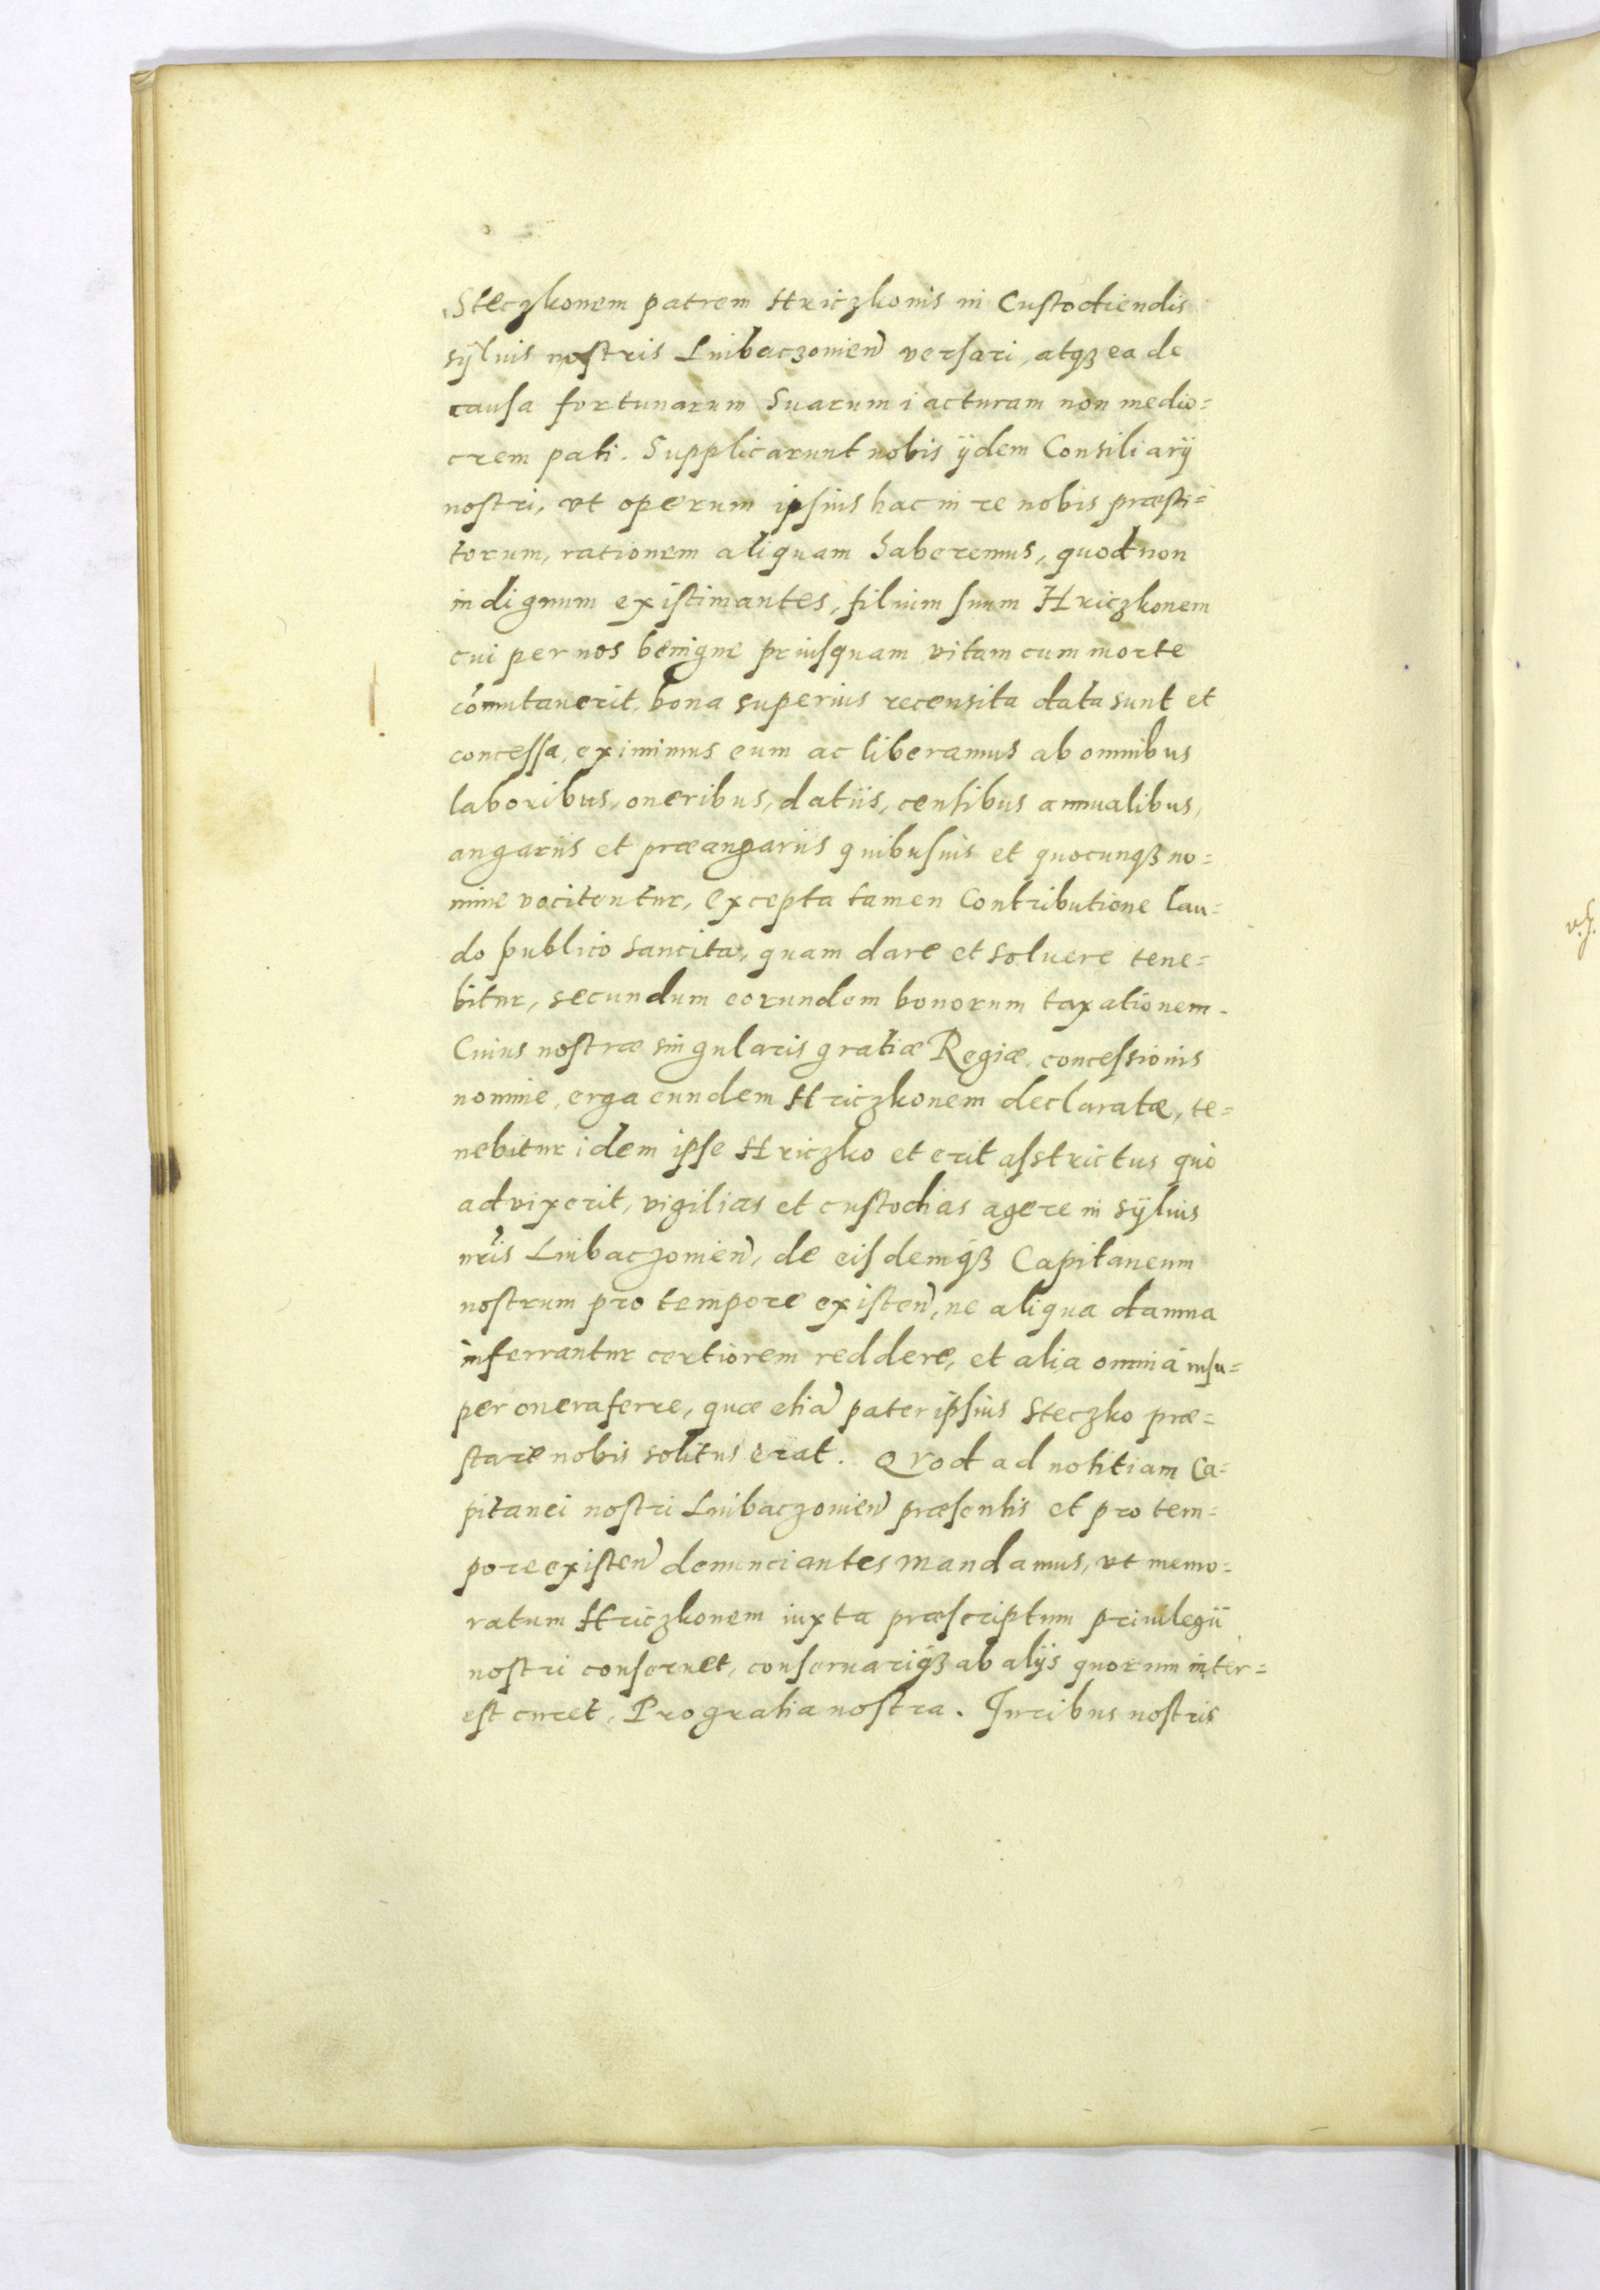 Steczkonem patrem Hriczkonis in Custodiendis
sÿluis nostris Luibaczouień versari, atqꝫ ea de
causa fortunarum Suarum iacturam non medio=
crem pati. Supplicarunt nobis ÿdem Consiliarÿ
nostri, vt operum ipsius hac in re nobis præsti=
torum, rationem aliquam haberemus, quod non
indignum existimantes, filium suum Hriczkonem
cui per nos benigne priusquam vitam cum morte
cōmutauerit, bona superius recensita data sunt et
concessa, eximimus eum ac liberamus ab omnibus
laboribus, oneribus, datiis, censibus annualibus,
angariis et præangariis quibusuis et quocunqꝫ no=
mine vocitentur, excepta tamen Contributione lau=
do publico sancita, quam dare et soluere tene=
bitur, secundum eorundem bonorum taxationem.
Cuius nostræ singularis gratiæ Regiæ, concessionis
nomine, erga eundem Hriczkonem declaratæ, te=
nebitur idem ipse Hriczko et erit asstrictus quo
advixerit, vigilias et custodias agere in sÿluis
nr̃is Luibaczouień, de eisdemqꝫ Capitaneum
nostrum pro tempore existeń, ne aliqua damna
inferrantur certiorem reddere, et alia omnia insu=
per onera ferre, quæ etiā pater ipsius Steczko præ=
stare nobis solitus erat. Qvod ad notitiam Ca=
pitanei nostri Luibaczouień præsentis et pro tem=
pore existeń denunciantes mandamus, vt memo=
ratum Hriczkonem iuxta præscriptum priuilegii
nostri conseruet, conseruariqꝫ ab alÿs quorum inter=
est curet, Pro gratia nostra. Juribus nostris